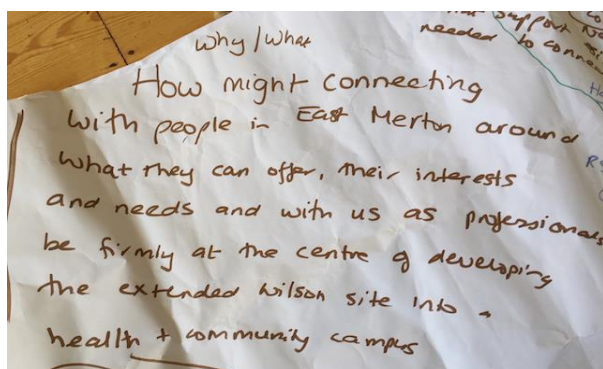 why/what
support
needed to
How might connecting
with people in East Merton around
what they can offer, their interests
and needs and with us as professionals
be firmly at the centre of developing
the extended Wilson site into a
health + community campus